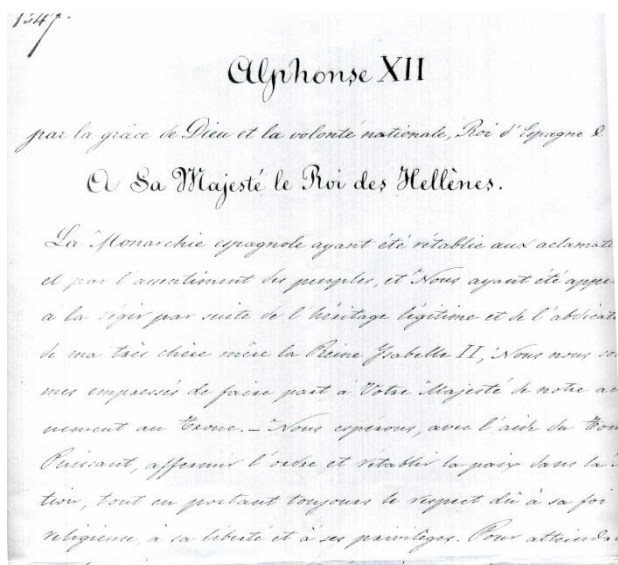 1347.
Alphonse XII
par la grâce de Dieu et la volonté nationale, Roi d'Espagne &
A Sa Majesté le Roi des Hellènes.
La Monarchie espagnole ayant été rétablie aux acclamat
et par l'assentiment des peuples, et Nous ayant été appe
à la régir par suite de l'héritage légitime et de l'abdicat
de ma très chère mère la Reine Ysabelle II, Nous nous som
mes empressés de faire part à Votre Majesté de notre a
nement au Trone. — Nous espérons, avec l'aide du Tou
Puissant, affermir l'ordre et rétablir la paix dans la
tion, tout en portant toujours le respect dû à sa foi
religieuse, à sa liberté et à ses privilèges. Pour atteind